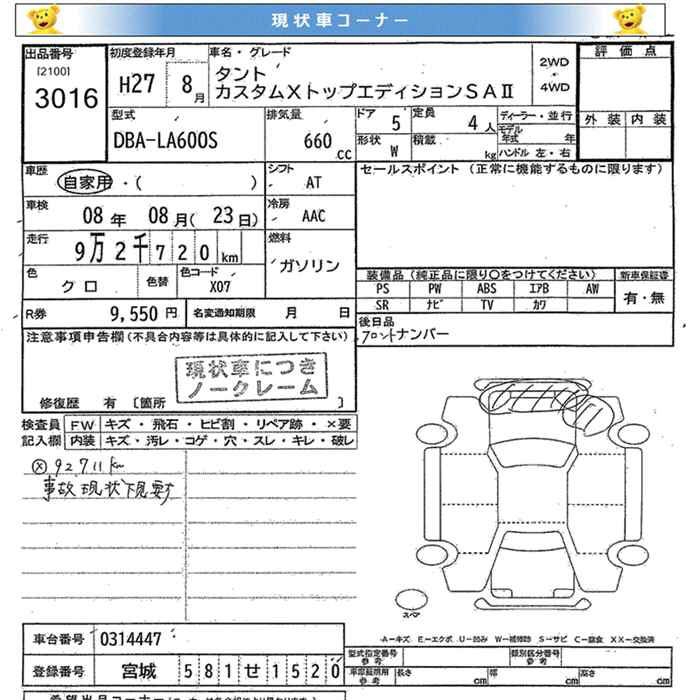 現状車コーナー
出品番号 初度登録年月 車名・グレード 評価点
[2100] 3016 H27 8月 タント 2WD
カスタムXトップエディションSAⅡ 4WD
型式 排気量 ドア 定員 ディーラー・並行 外装 内装
DBA-LA600S 660CC 5 4人 モデル年式 年
形状 W 積載 kg ハンドル 左・右
車歴 シフト セールスポイント (正常に機能するものに限ります)
自家用・( ) AT
車検 冷房
08年 08月( 23日) AAC
走行 燃料
9万2千720km ガソリン
色 色替 色コード 装備品(純正品に限り〇をつけてください) 新車保証書
クロ X07 PS PW ABS エアB AW 有・無
SR ナビ TV カワ
R券 9,550円 名変通知期限 月 日 後日品
フロントナンバー
注意事項申告欄(不具合内容等は具体的に記入して下さい)
現状車につき
ノークレーム
修復歴 有 〔箇所 〕
検査員 FW キズ・飛石・ヒビ割・リペア跡・×要
記入欄 内装 キズ・汚レ・コゲ・穴・スレ・キレ・破レ
ⓧ92711km
事故現状下見要す
スペア
A-キズ E-エクボ U-凹み W-補修跡 S-サビ C-腐食 XX-交換済
車台番号 0314447 型式指定番号 参考 類別区分番号 参考
登録番号 宮城 581せ1520 参考 長さ cm 幅 cm 高さ cm